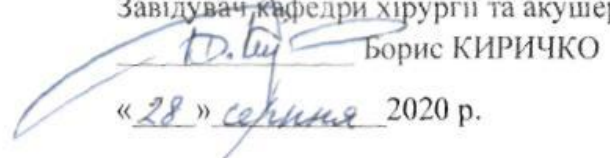 Завідувач кафедри хірургії та акушер
Борис КИРИЧКО
« 28 » серпня 2020 р.